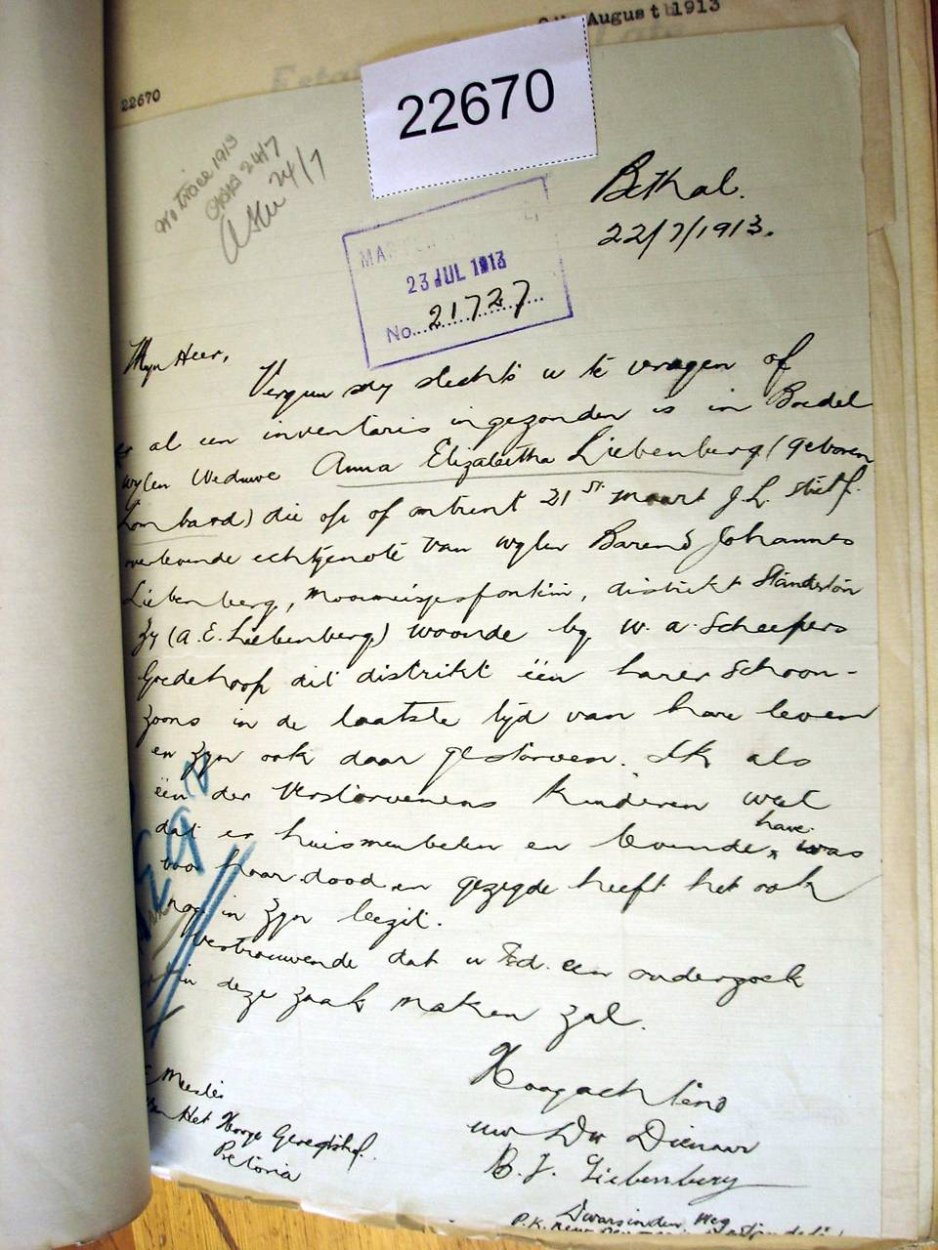 August 1913
22670
22670
No trace 1913
24/7
24/7
Bethal.
22/7/1913.
23 JUL 1913
No. 21727
Myn Heer,
Vergun my slechts u te vragen of
er al een inventaris ingezonden is in Boedel
wylen Weduwe Anna Elizabetha Liebenberg (geboren
Lombard) die op of omtrent 21st. Maart J.L. stierf.
overlevende echtgenote van wylen Barend Johannes
Liebenberg, Mooimeisjesfontein, distrikt Standerton
Zy (A. E. Liebenberg) woonde by W. A. Scheepers
Goedehoop dit distrikt één harer Schoon-
zoons in de laatste tyd van hare leven
en zyn ook daar gestorven. Ik als
één der Verstorvenens Kinderen weet
dat er huismeubelen en levende have was
voor haar dood en gezegde heeft het ook
nog in zyn bezit.
Vertrouwende dat u Ed. een onderzoek
in deze zaak maken zal.
Hoogachtend
uw Dw Dienaar
B. J. Liebenberg
Dwarsindenweg
P.K.
Meester
van Het Hooge Geregtshof.
Pretoria